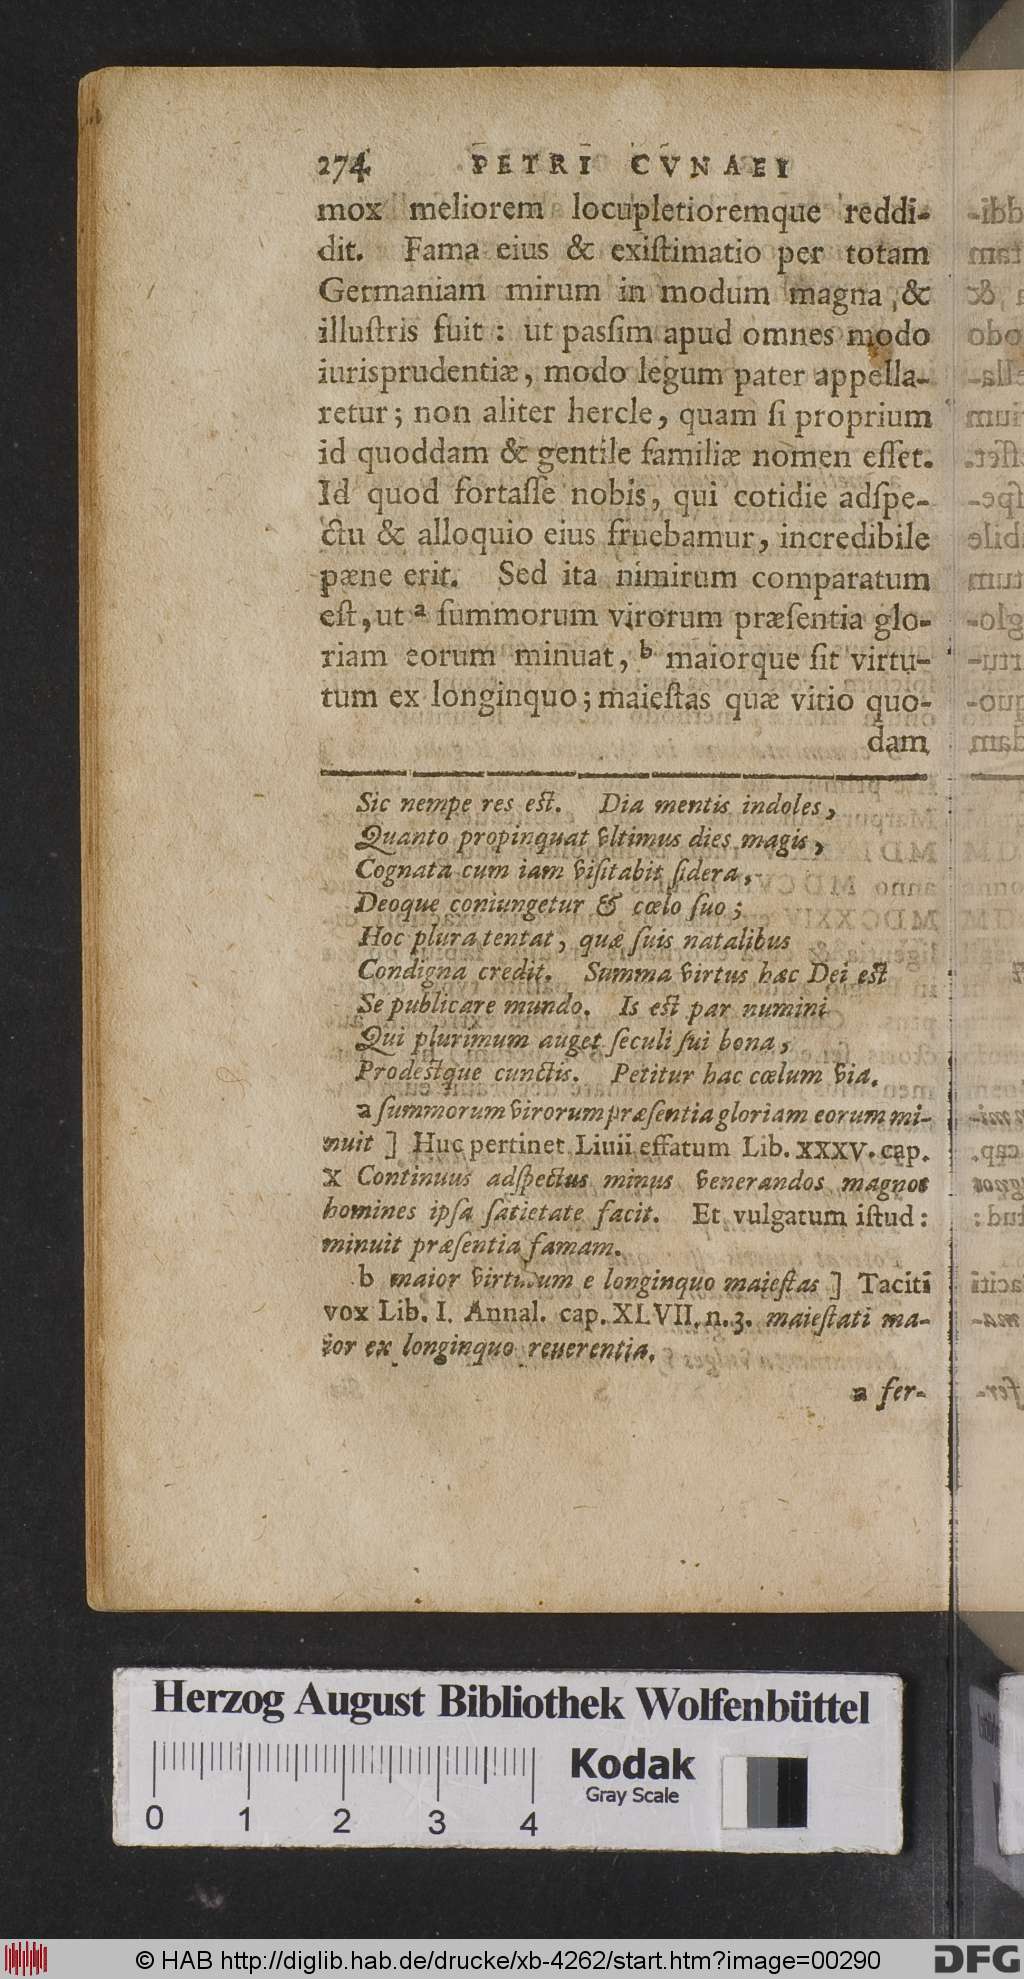 274 PETRI CVNAEI
mox meliorem locupletioremque reddi-
dit. Fama eius & exiſtimatio per totam
Germaniam mirum in modum magna, &
illuſtris fuit: ut paſſim apud omnes modo
iurisprudentiæ, modo legum pater appella-
retur; non aliter hercle, quam ſi proprium
id quoddam & gentile familiæ nomen eſſet.
Id quod fortaſſe nobis, qui cotidie adſpe-
ctu & alloquio eius fruebamur, incredibile
pæne erit. Sed ita nimirum comparatum
eſt, ut a ſummorum virorum præſentia glo-
riam eorum minuat, b maiorque ſit virtu-
tum ex longinquo; maieſtas quæ vitio quo-
dam
Sic nempe res eſt. Dia mentis indoles,
Quanto propinquat vltimus dies magis,
Cognata cum iam viſitabit ſidera,
Deoque coniungetur & cœlo ſuo;
Hoc plura tentat, quæ ſuis natalibus
Condigna credit. Summa virtus hæc Dei eſt
Se publicare mundo. Is eſt par numini
Qui plurimum auget ſeculi ſui bona,
Prodeſtque cunctis. Petitur hac cœlum via.
a ſummorum virorum præſentia gloriam eorum mi-
nuit ] Huc pertinet Liuii effatum Lib. XXXV. cap.
X Continuus adſpectus minus venerandos magnos
homines ipſa ſatietate facit. Et vulgatum iſtud:
minuit præſentia famam.
b maior virtutum e longinquo maieſtas ] Taciti
vox Lib. I. Annal. cap. XLVII. n. 3. maieſtati ma-
ior ex longinquo reuerentia.
a fer-
Herzog August Bibliothek Wolfenbüttel
Kodak
Gray Scale
0 1 2 3 4
© HAB http://diglib.hab.de/drucke/xb-4262/start.htm?image=00290
DFG